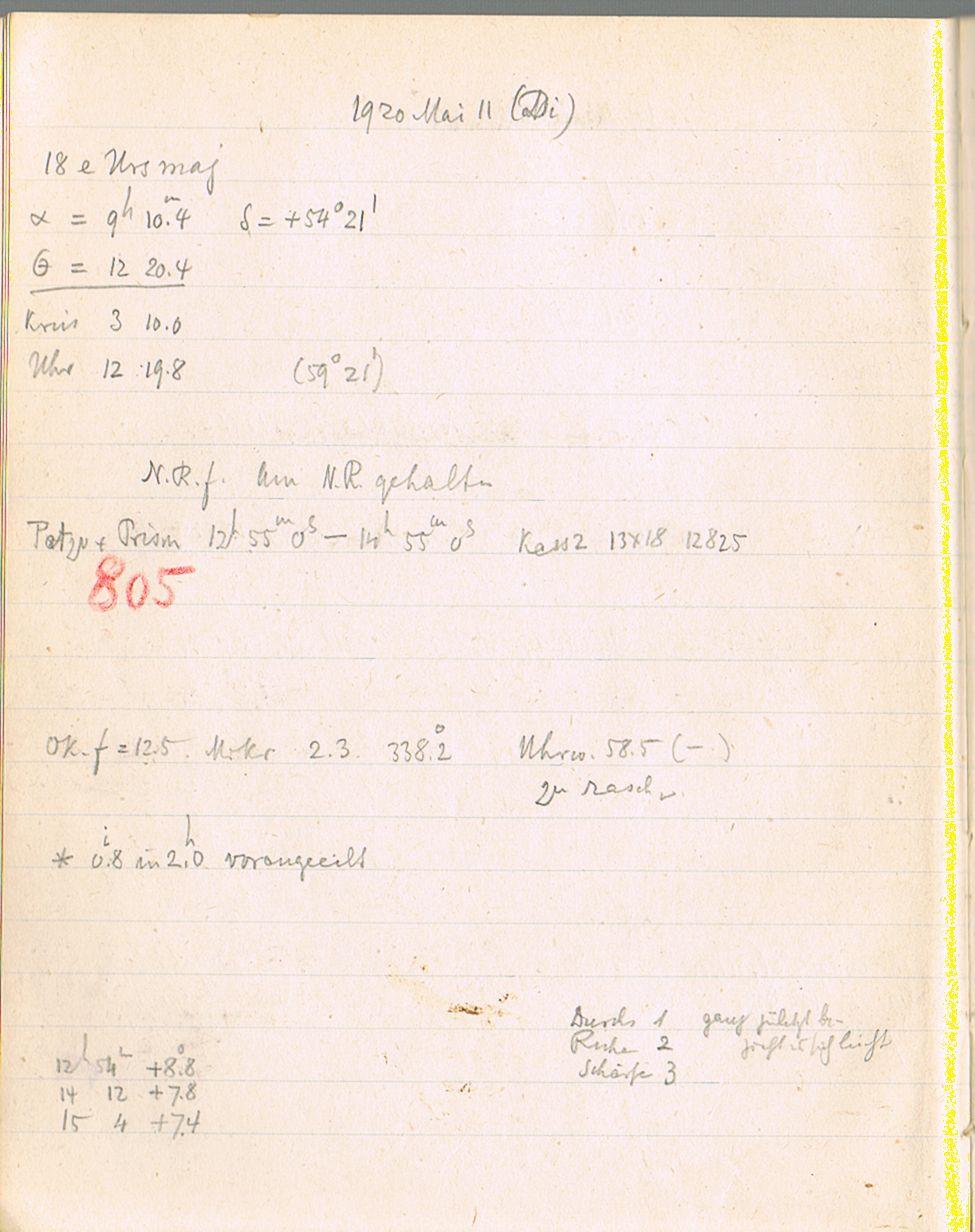 1920 Mai 11 (Di)
18 e Urs maj
α = 9ʰ 10ᵐ.4 δ = +54°21'
θ = 12 20.4
Kreis 3 10.0
Uhr 12 19.8 (59°21')
N.R.f. Am N.R. gehalten
Petzv + Prism 12ʰ 55ᵐ 0ˢ — 14ʰ 55ᵐ 0ˢ Kass 2 13x18 12825
805
Ok. f = 12.5. Mikr 2.3. 338°.2 Uhrw. 58.5 (-)
zu rasch
* 0.8 in 2ʰ.0 vorangeeilt
Durchs 1 ganz zuletzt be-
Ruhe 2 zieht es sich leicht
Schärfe 3
12ʰ 54ᵐ +8°.8
14 12 +7.8
15 4 +7.4